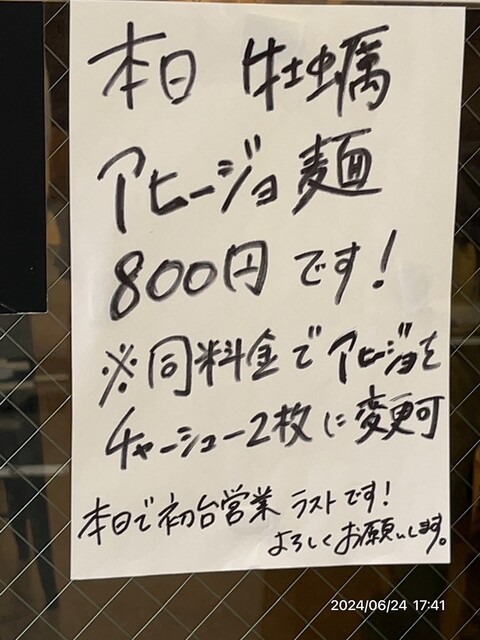 本日 牡蠣
アヒージョ麺
800円です!
※同料金でアヒージョを
チャーシュー2枚に変更可
本日で初台営業ラストです!
よろしくお願いします。
2024/06/24 17:41